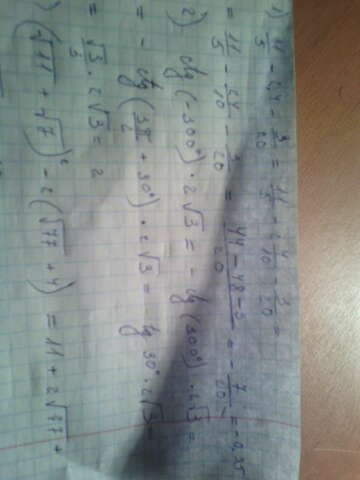 1) 11/5 - 2,4 - 3/20 = 11/5 - 2 4/10 - 3/20 =
= 11/5 - 24/10 - 3/20 = (44 - 48 - 3)/20 = - 7/20 = -0,35
2) ctg(-300°) · 2√3 = - ctg(300°) · 2√3 =
= - ctg(3π/2 + 30°) · 2√3 = tg 30° · 2√3 =
= √3/3 · 2√3 = 2
) (√11 + √7)² - 2(√77 + 4) = 11 + 2√77 +